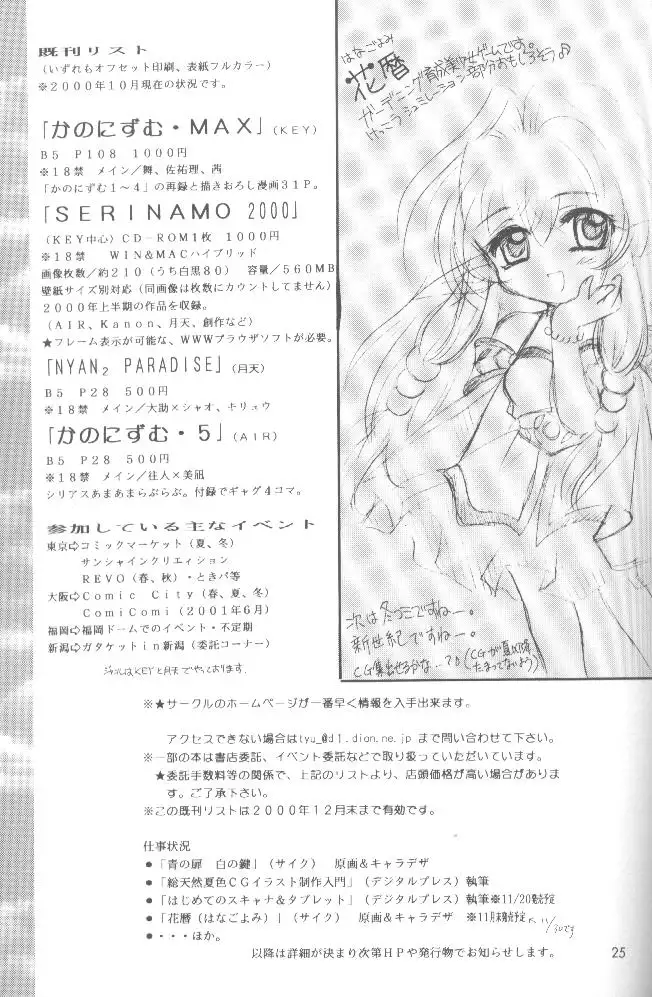 既刊リスト
（いずれもオフセット印刷、表紙フルカラー）
※２０００年１０月現在の状況です。
「かのにずむ・ＭＡＸ」（ＫＥＹ）
Ｂ５　Ｐ１０８　１０００円
※１８禁　メイン／舞、佐祐理、茜
「かのにずむ１〜４」の再録と描きおろし漫画３１Ｐ。
「ＳＥＲＩＮＡＭＯ 2000」
（ＫＥＹ中心）ＣＤ－ＲＯＭ１枚　１０００円
※１８禁　ＷＩＮ＆ＭＡＣハイブリッド
画像枚数／約２１０（うち白黒８０）　容量／５６０ＭＢ
壁紙サイズ別対応（同画像は枚数にカウントしてません）
２０００年上半期の作品を収録。
（ＡＩＲ、Ｋａｎｏｎ、月天、創作など）
★フレーム表示が可能な、ＷＷＷブラウザソフトが必要。
「NYAN₂ PARADISE」（月天）
Ｂ５　Ｐ２８　５００円
※１８禁　メイン／大助×シャオ、キリュウ
「かのにずむ・５」（ＡＩＲ）
Ｂ５　Ｐ２８　５００円
※１８禁　メイン／往人×美凪
シリアスあまあまらぶらぶ。付録でギャグ４コマ。
参加している主なイベント
東京⇨コミックマーケット（夏、冬）
サンシャインクリエィション
ＲＥＶＯ（春、秋）・ときパ等
大阪⇨Ｃｏｍｉｃ　Ｃｉｔｙ（春、夏、冬）
ＣｏｍｉＣｏｍｉ（２００１年６月）
福岡⇨福岡ドームでのイベント・不定期
新潟⇨ガタケットｉｎ新潟（委託コーナー）
ジャンルはKEYと月天でやっております.
はなごよみ
花暦
ガーデニング育成美少女ゲームです。
けっこうシュミレーション部分おもしろそう♪
次は冬コミですねー。
新世紀ですねー。
CG集出せるかな...?（CGが夏以降
たまってないよう）
※★サークルのホームページが一番早く情報を入手出来ます。
アクセスできない場合はtyu_@d1.dion.ne.jp まで問い合わせて下さい。
※一部の本は書店委託、イベント委託などで取り扱っていただいています。
★委託手数料等の関係で、上記のリストより、店頭価格が高い場合がありま
す。ご了承下さい。
※この既刊リストは２０００年１２月末まで有効です。
仕事状況
●「青の扉　白の鍵」（サイク）　原画＆キャラデザ
●「総天然夏色ＣＧイラスト制作入門」（デジタルプレス）執筆
●「はじめてのスキャナ＆タブレット」（デジタルプレス）執筆※11/20発売予定
●「花暦（はなごよみ）」（サイク）　原画＆キャラデザ　※11月末発売予定 11/30です
●・・・ほか。
以降は詳細が決まり次第ＨＰや発行物でお知らせします。
25